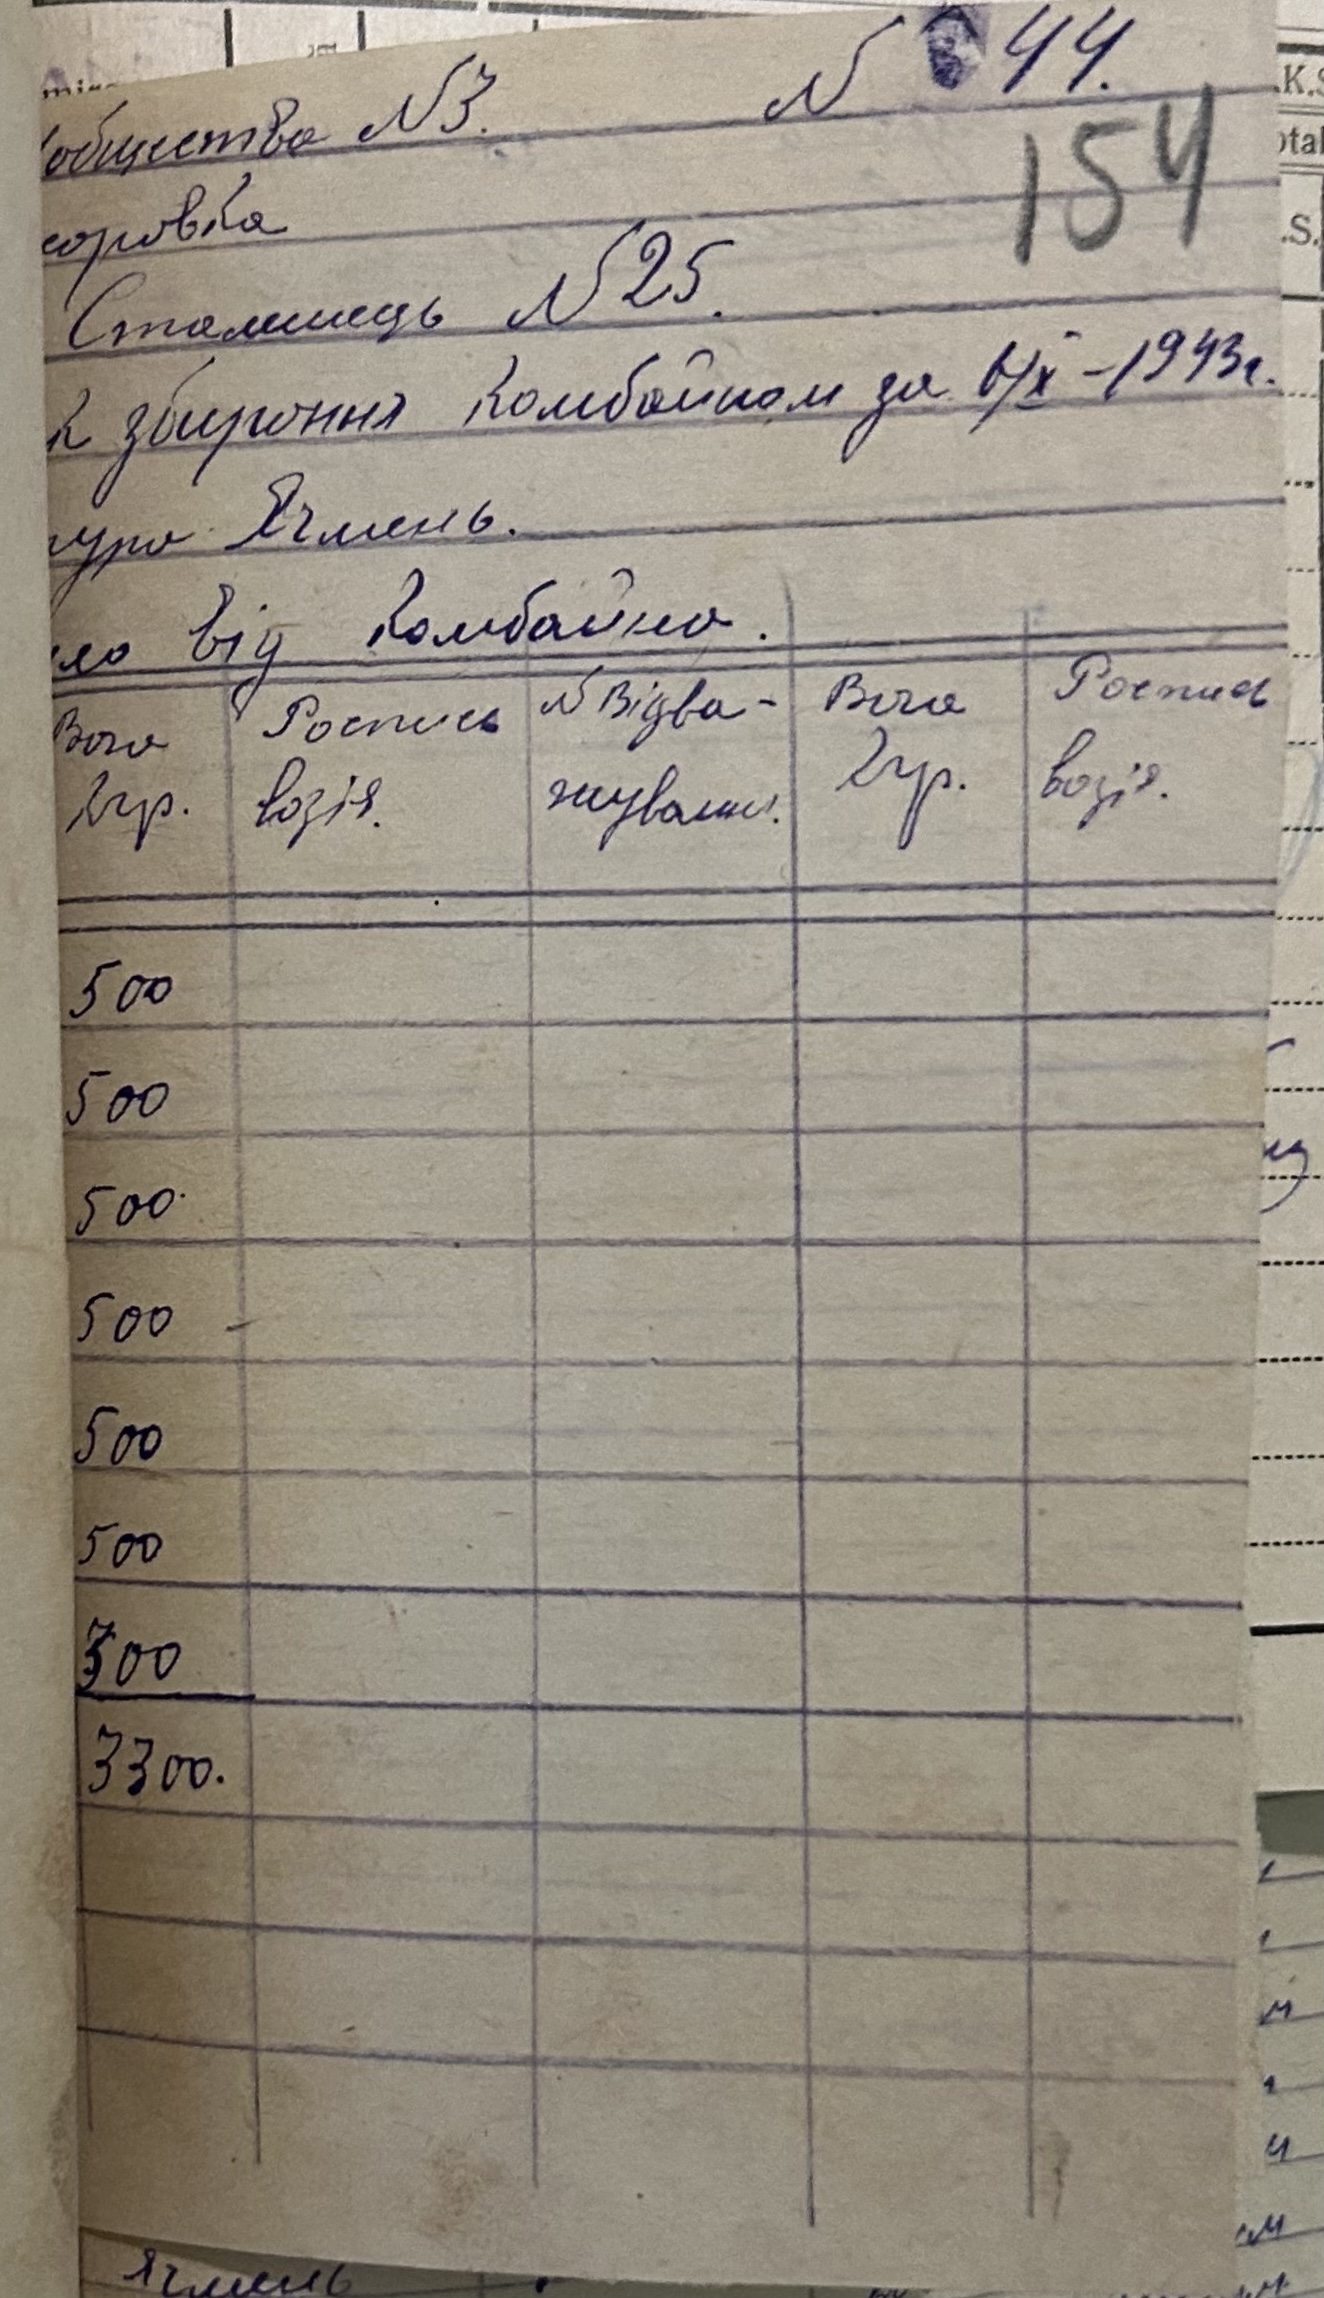 общества №3. № 44.
154
оровка
Сталинець №25.
к збирання комбайном за 6/X-1943г.
тура Ячмень.
ло від комбайна.
Вага Роспись № Відва- Вага Роспись
кгр. возія. жування. кгр. возія.
500
500
500
500
500
500
300
3300.
Ячмень